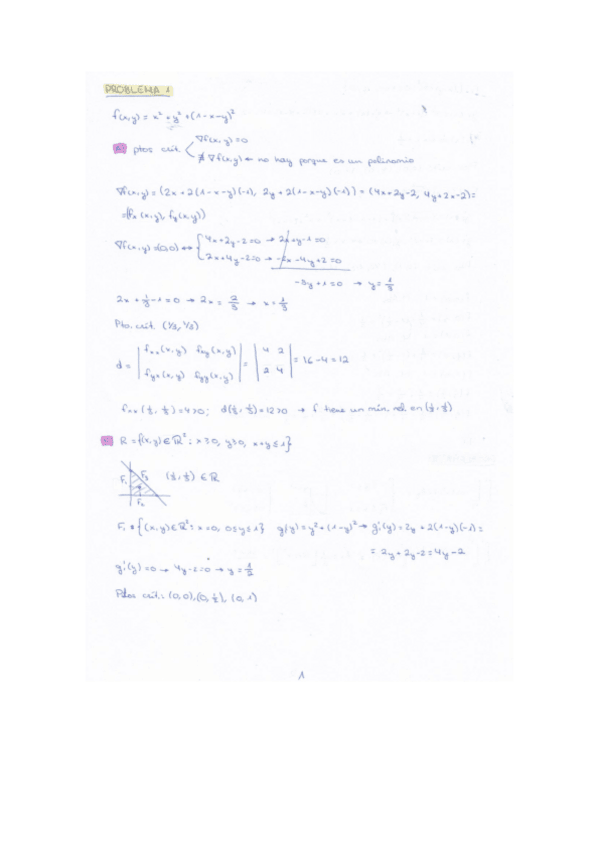 PROBLEMA 1
f(x,y) = x² + y² + (1-x-y)²
a) ptos crít. ∇f(x,y)=0
∄ ∇f(x,y) ← no hay porque es un polinomio
∇f(x,y) = (2x + 2(1-x-y)(-1), 2y + 2(1-x-y)(-1)) = (4x+2y-2, 4y+2x-2) =
= (fx(x,y), fy(x,y))
∇f(x,y) = (0,0) ⟺ { 4x+2y-2=0 → 2x+y-1=0
2x+4y-2=0 → -2x-4y+2=0
-3y+1=0 → y = 1/3
2x + 1/3 - 1 = 0 → 2x = 2/3 → x = 1/3
Pto. crít. (1/3, 1/3)
d = | fxx(x,y) fxy(x,y) | = | 4 2 | = 16-4 = 12
| fyx(x,y) fyy(x,y) | | 2 4 |
fxx(1/3, 1/3) = 4>0; d(1/3, 1/3) = 12>0 → f tiene un mín. rel. en (1/3, 1/3)
b) R = {(x,y) ∈ ℝ² : x≥0, y≥0, x+y≤1}
F1 F3 (1/3, 1/3) ∈ R
F2
F1 = {(x,y) ∈ ℝ² : x=0, 0≤y≤1} g(y) = y² + (1-y)² → g'(y) = 2y + 2(1-y)(-1) =
= 2y + 2y - 2 = 4y - 2
g'(y) = 0 → 4y-2=0 → y = 1/2
Ptos crít.: (0,0), (0, 1/2), (0,1)
1